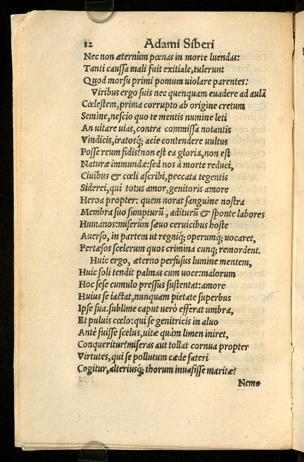 12 Adami Siberi
Nec non æternùm pœnas in morte luendas:
Tanti caussa mali fuit exitiale, tulerunt
Quod morsu primi pomum uiolare parentes:
Viribus ergo suis nec quenquam euadere ad aulã
Cœlestem, prima corrupto ab origine cretum
Semine, nescio quo te mentis numine leti
An uitare uias, contra commissa notantis
Vindicis, iratosq́; acie contendere uultus
Posse reum fidis? non est ea gloria, non est
Naturæ immundæ: sed nos à morte reduci,
Ciuibus & cœli ascribi, peccata tegentis
Siderei, qui totus amor, genitoris amore
Heroa propter: quem norat sanguine nostra
Membra suo sumpturũ, aditurũ & sponte labores
Humanos: miserùm sæuo ceruicibus hoste
Auerso, in partem ut regniq́; operumq́; uocaret,
Pertæsos scelerum quos crimina cunq; remordent.
Huic ergo, æterno perfusus lumine mentem,
Huic soli tendit palmas cum uoce: malorum
Hoc sese cumulo pressus sustentat: amore
Huius se iactat, nunquam pietate superbus
Ipse sua. sublime caput uerò efferat umbra,
Et puluis cœlo: qui se genitricis in aluo
Antè fuisse scelus, uitæ quàm limen iniret,
Conqueritur? miseras aut tollat cornua propter
Virtutes, qui se pollutum cæde fateri
Cogitur, alteriusq́; thorum inuasisse maritæ?
Nemo